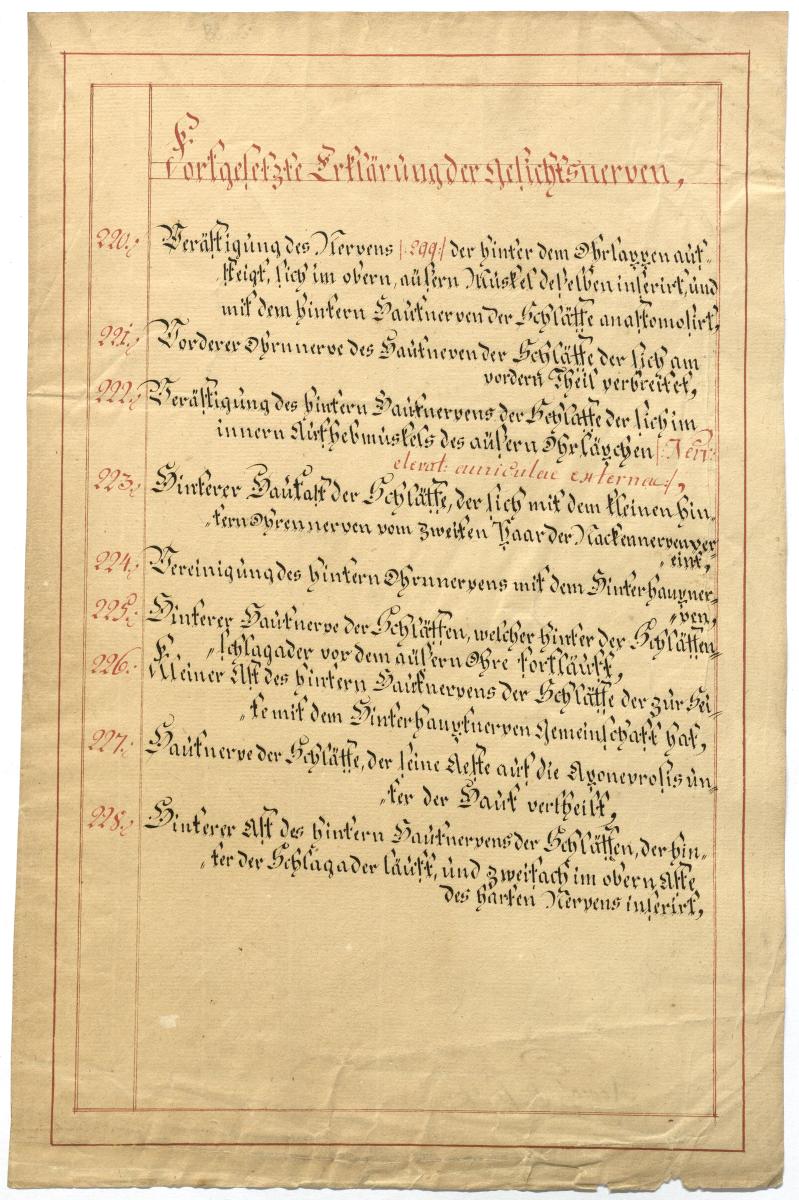 Fortgesetzte Erklärung der Gesichtsnerven,
220. Verästigung des Nervens |: 299 :| der hinter dem Ohrlappen auf-
steigt, sich im obern, äusern Muskel deselben inserirt, und
mit dem hintern Hautnerven der Schläffe anastomosirt,
221. Vorderer Ohrnnerve des Hautneven der Schläffe der sich am
vordern Theil verbreitet,
222. Verästigung des hintern Hautnervens der Schläffe der sich im
innern Aufhebmuskels des äusern Ohrläpchen |: Nerv:
elevat: auriculae externae :|,
223. Hinterer Hautast der Schläffe, der sich mit dem kleinen hin-
tern Ohrennerven vom zweiten Paar der Nackennerven ver
eint,
224. Vereinigung des hintern Ohrnnervens mit dem Hinterhauptner-
ven,
225. Hinterer Hautnerve der Schläffen, welcher hinter der Schläffen-
schlagader vor dem äusern Ohre fortläuft,
226. Kleiner Ast des hintern Hautnervens der Schläffe der zur Sei-
te mit dem Hinterhauptnerven Gemeinschaft hat,
227. Hautnerve der Schläffe, der seine Aeste auf die Aponevrosis un-
ter der Haut vertheilt,
228. Hinterer Ast des hintern Hautnervens der Schläffen, der hin-
ter der Schlagader läuft, und zweifach im obern Aste
des harten Nervens inserirt,